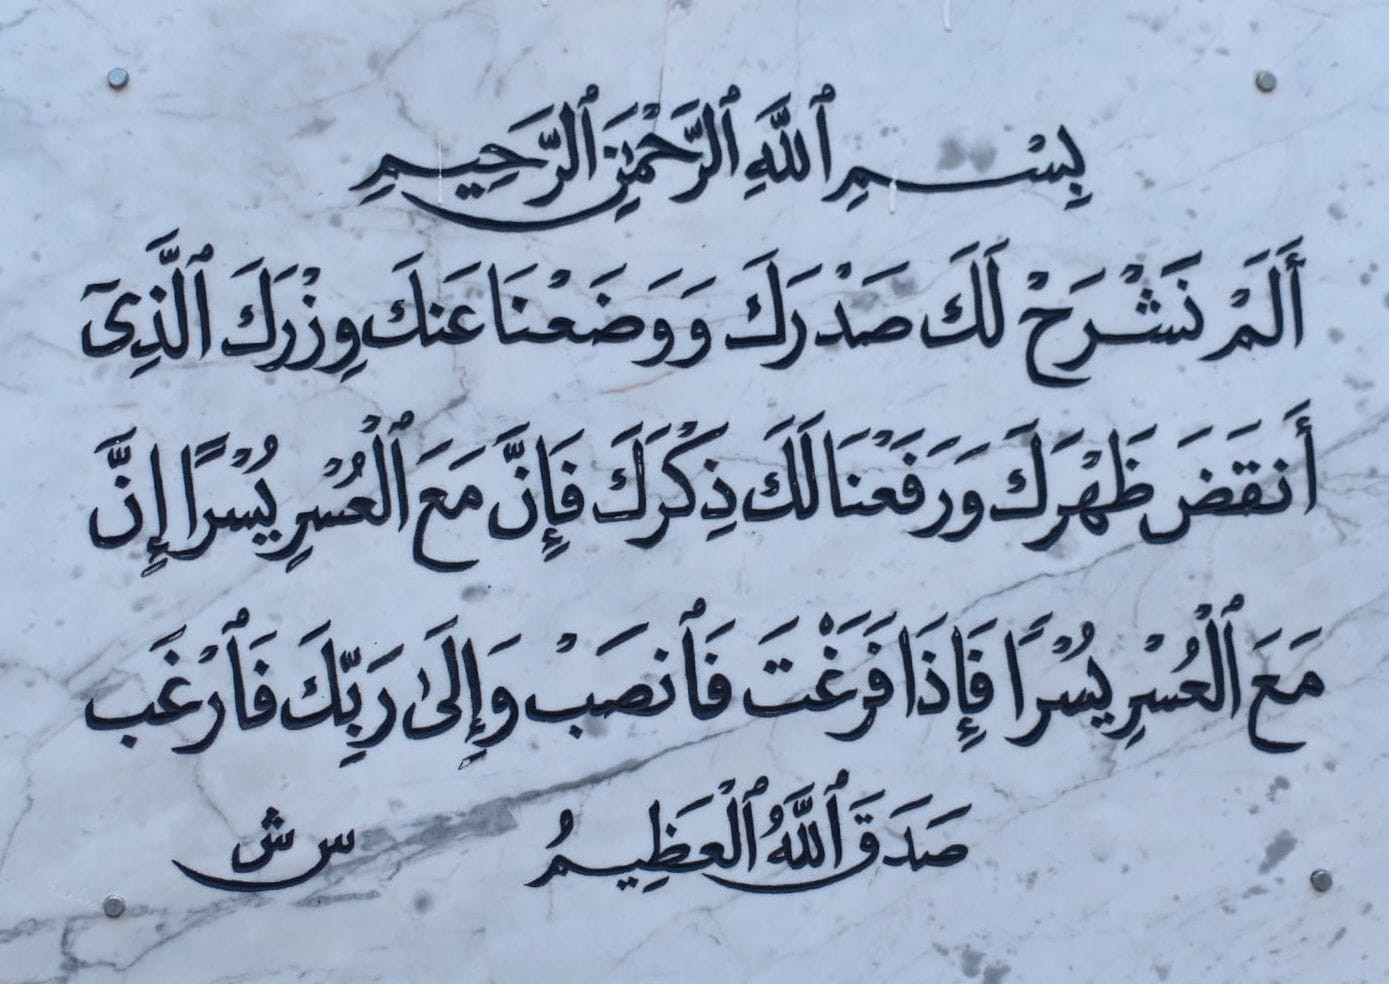 بِسْمِ ٱللَّهِ ٱلرَّحْمَٰنِ ٱلرَّحِيمِ
أَلَمْ نَشْرَحْ لَكَ صَدْرَكَ وَوَضَعْنَا عَنكَ وِزْرَكَ ٱلَّذِىٓ
أَنقَضَ ظَهْرَكَ وَرَفَعْنَا لَكَ ذِكْرَكَ فَإِنَّ مَعَ ٱلْعُسْرِ يُسْرًا إِنَّ
مَعَ ٱلْعُسْرِ يُسْرًا فَإِذَا فَرَغْتَ فَٱنصَبْ وَإِلَىٰ رَبِّكَ فَٱرْغَب
صَدَقَ ٱللَّهُ ٱلْعَظِيمُ س ش